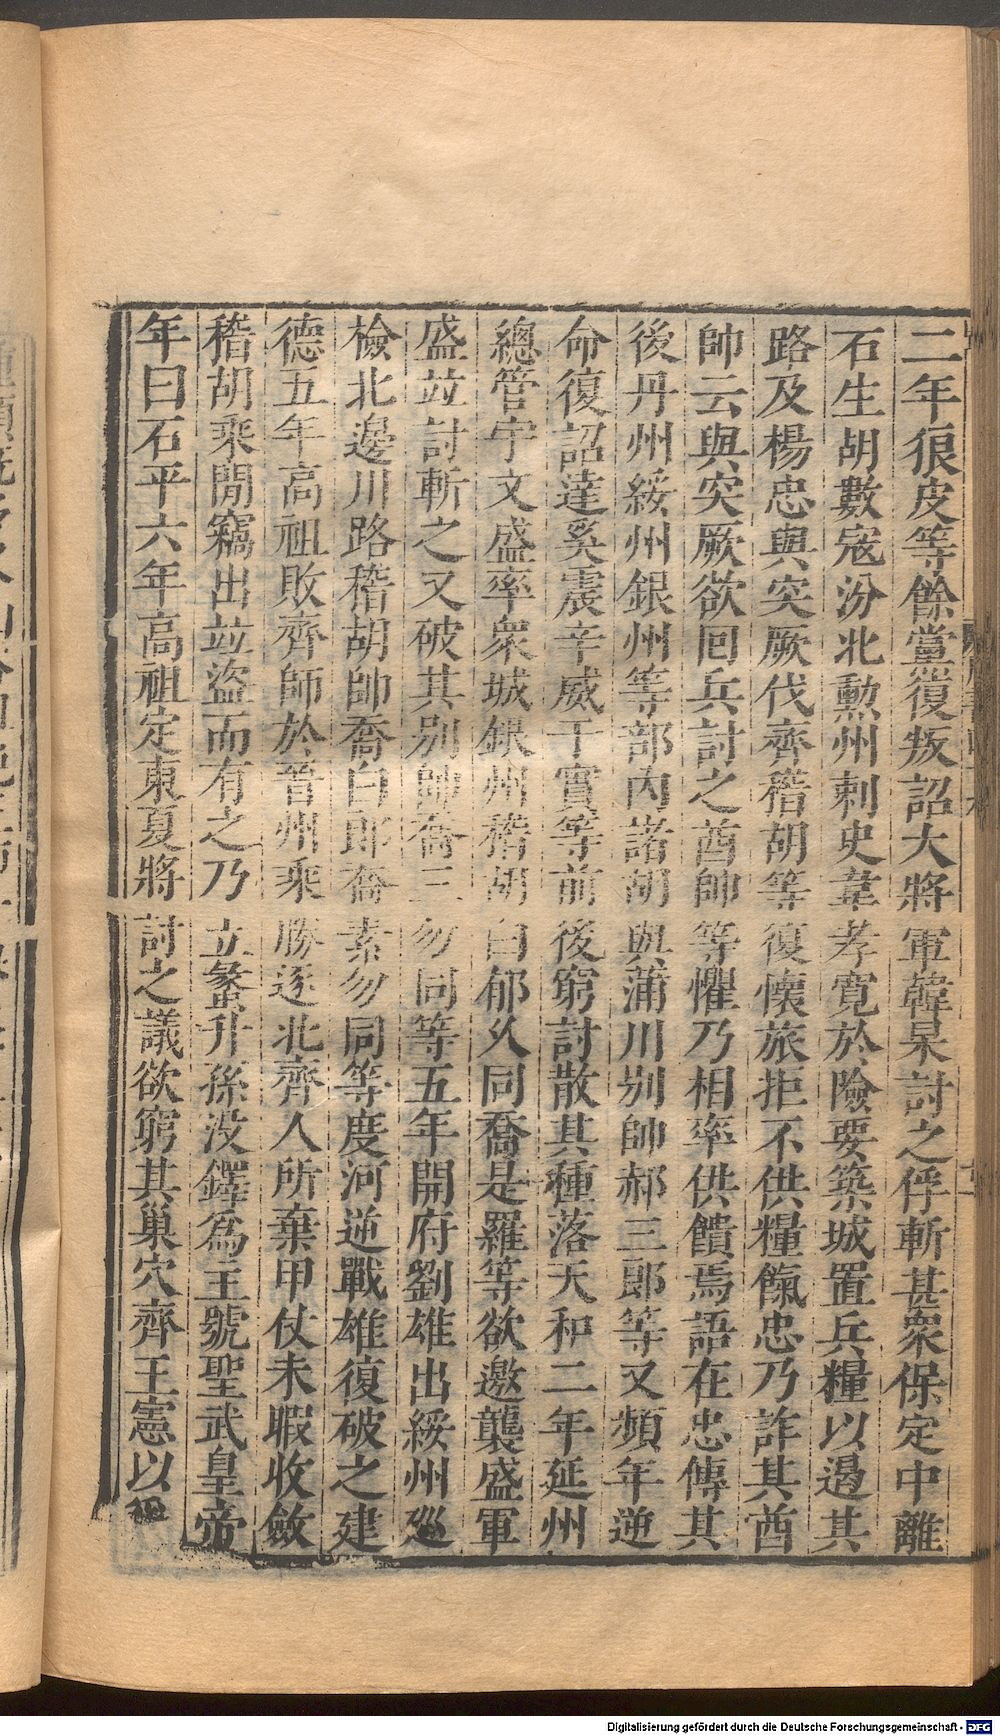 二年很皮等餘黨復叛詔大將軍韓杲討之俘斬甚衆保定中離
石生胡數寇汾北勳州刺史韋孝寬於險要築城置兵糧以遏其
路及楊忠與突厥伐齊稽胡等復懷旅拒不供糧餼忠乃詐其酋
帥云與突厥欲囘兵討之酋帥等懼乃相率供饋焉語在忠傳其
後丹州綏州銀州等部內諸胡與蒲川别帥郝三郎等又頻年逆
命復詔達奚震辛威于實等前後窮討散其種落天和二年延州
總管宇文盛率衆城銀州稽胡白郁久同喬是羅等欲邀襲盛軍
盛竝討斬之又破其别帥喬三勿同等五年開府劉雄出綏州廵
檢北邊川路稽胡帥喬白郎喬素勿同等度河逆戰雄復破之建
德五年高祖敗齊師於晉州乘勝逐北齊人所棄甲仗未暇收斂
稽胡乘閒竊出竝盜而有之乃立蠡升孫没鐸爲主號聖武皇帝
年曰石平六年高祖定東夏將討之議欲窮其巢穴齊王憲以
Digitalisierung gefördert durch die Deutsche Forschungsgemeinschaft - DFG